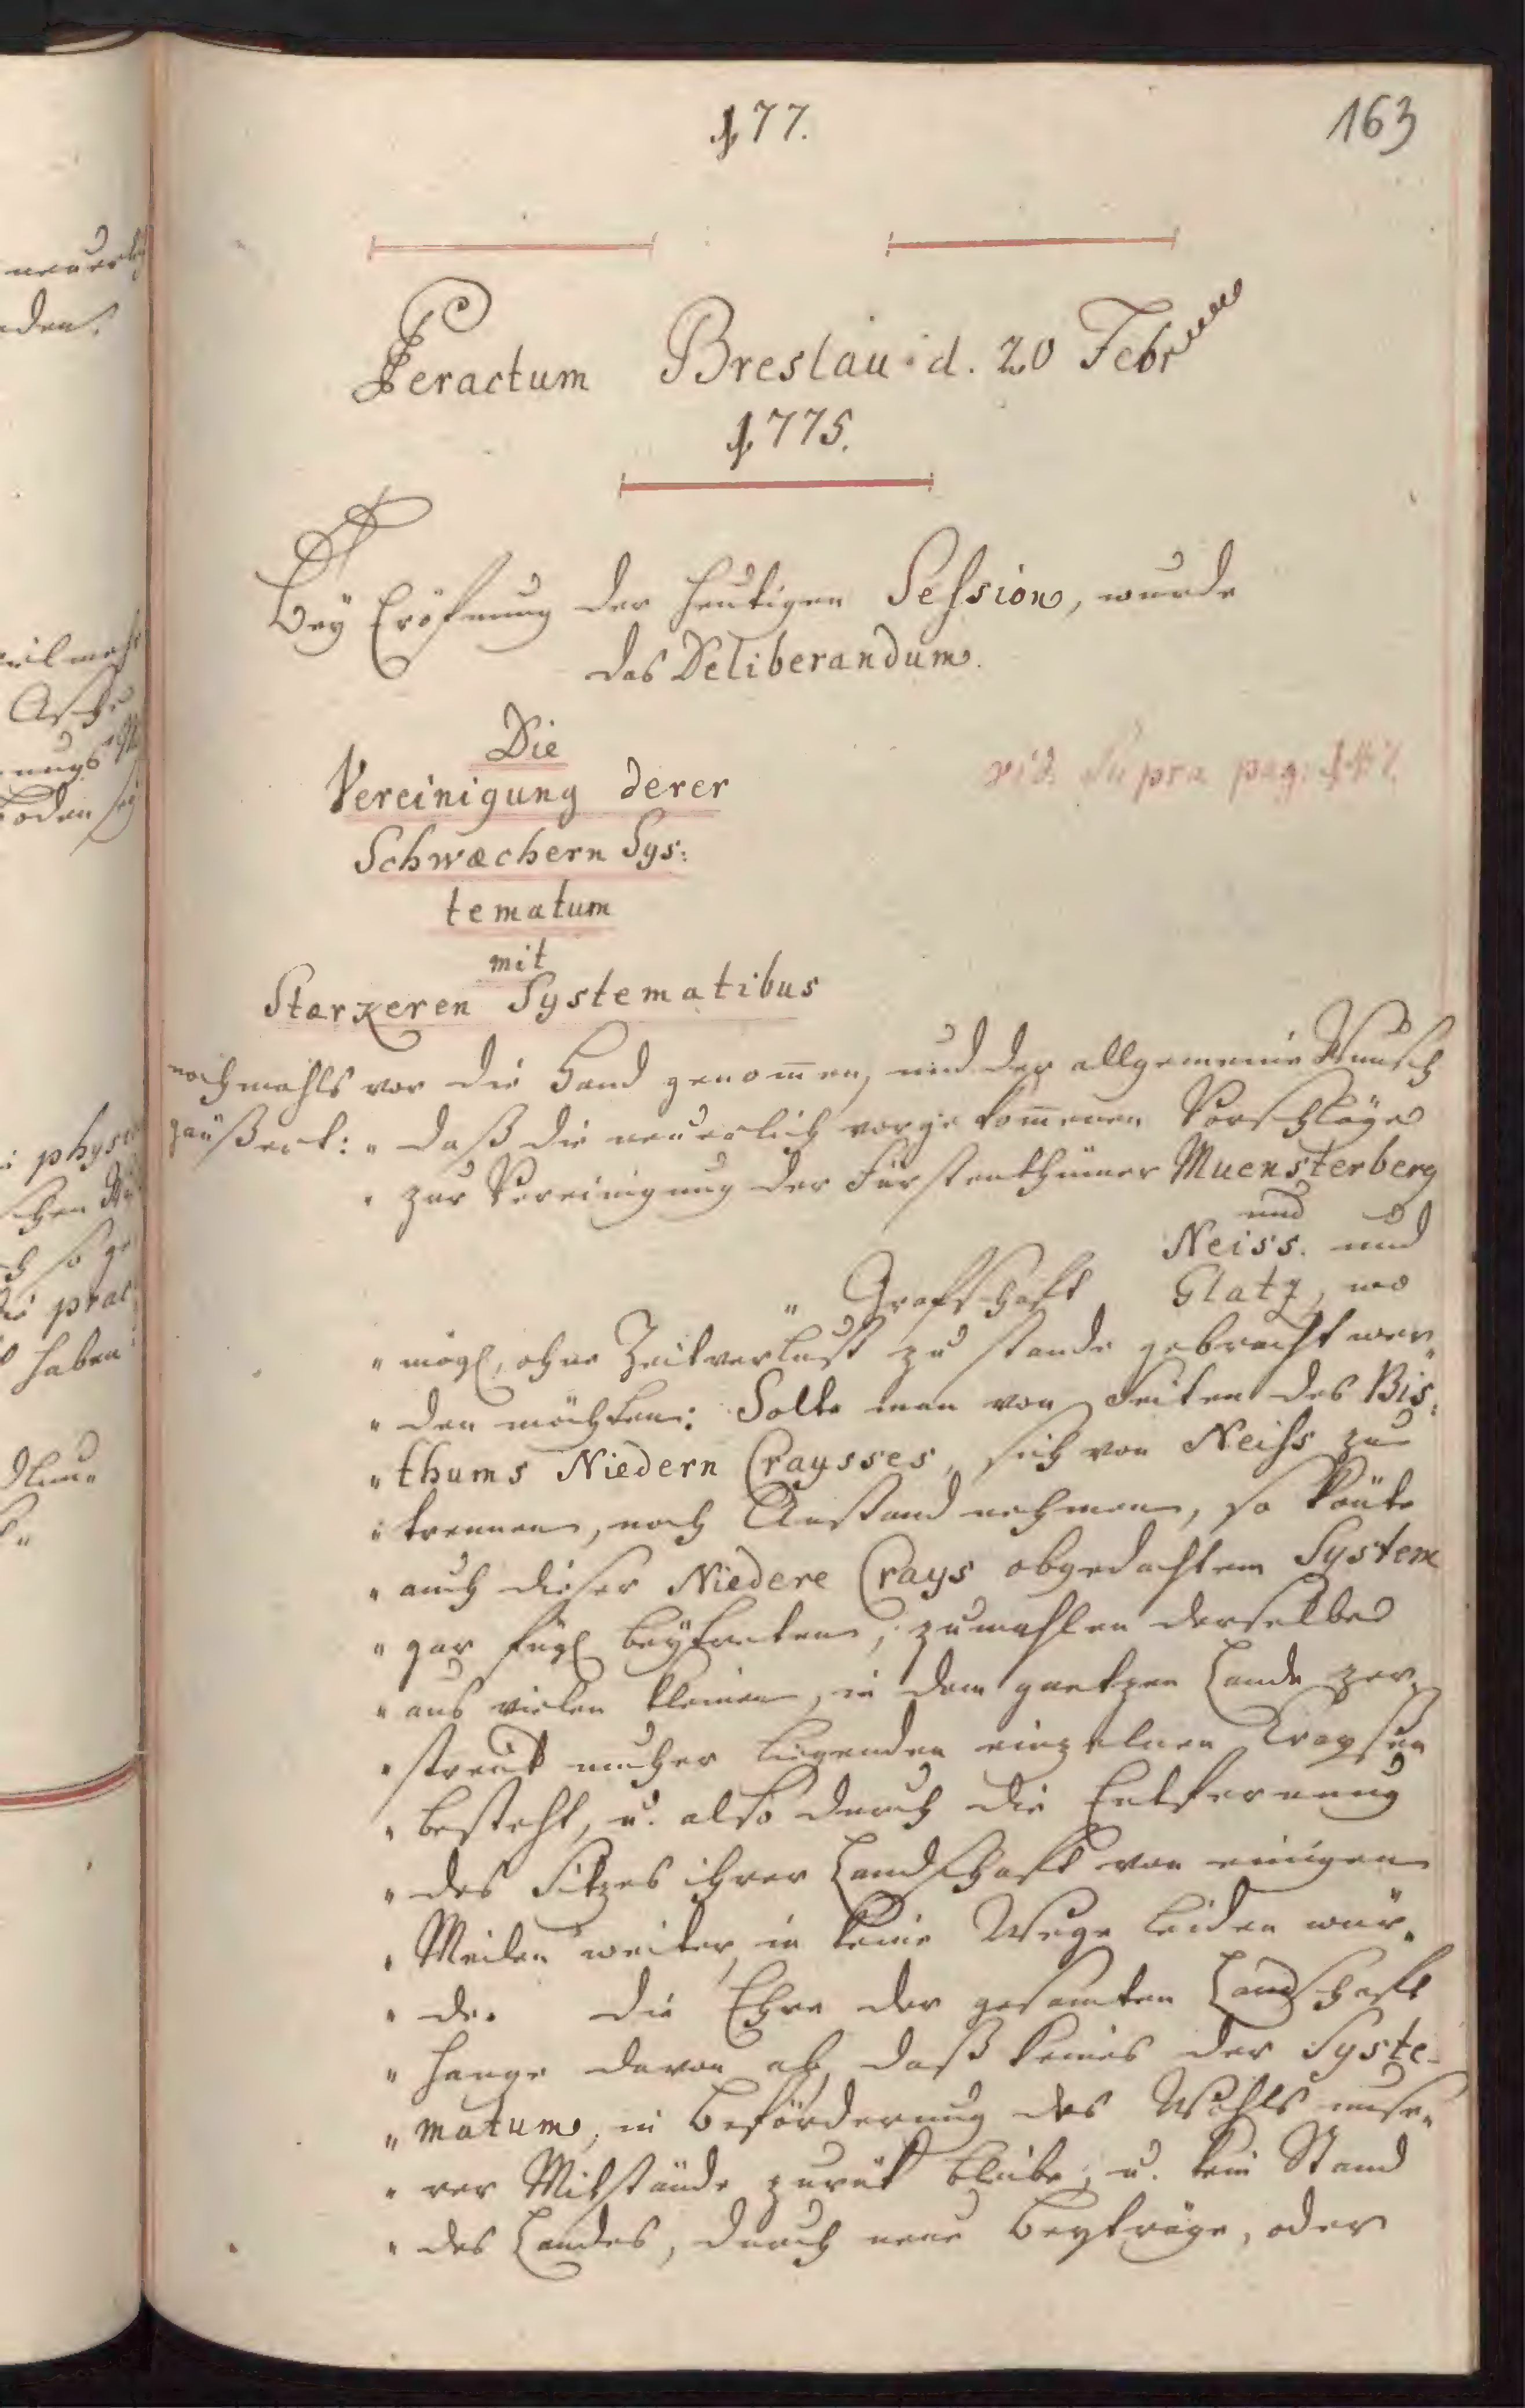 177.
163
Peractum Breslau d. 20 Febr
1775.
Bey Eröfnung der heutigen Session, wurde
das Deliberandum.
Die
Vereinigung derer
Schwæchern Sys:
tematum
mit
Stærkeren Systematibus
vid. Supra pag:
nochmahls vor die Hand genom̄en, und der allgemeine Wunsch
geäußert: „ daß die neuerlich vorgekom̄enen Vorschläge
„ zur Vereinigung der Fürstenthümer Muensterberg
und
Neiss. und
„ Grafschaft Glatz, wo
„ mögl, ohne Zeitverlust zu stande gebracht wer„
„ den möchten: Solte man von Seiten des Bis:
„ thums Niedern Craysses, sich von Neiss zu
„ trennen, noch Anstand nehmen, so könte
„ auch dieser Niedere Crays obgedachtem System
„ gar fügl beytreten, zumahlen derselbe
„ aus vielen kleinen, in dem gantzen Lande zer„
„ streut umher liegenden einzelnen Craysen
„ besteht, u. also durch die Entfernung
„ des Sitzes ihrer Landschaft von einigen
„ Meilen weiter, in keine Wege leiden wür„
„ de. Die Ehre der gesamten Landschaft
„ hange davon ab, daß keines der Syste-
„ matum, in Beförderung des Wohls unse„
„ rer Mitstände zurük bleibe, u. kein Stand
„ des Landes, durch neue Beyträge, oder